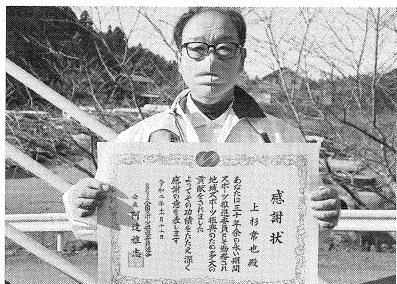 感謝状
上杉常也殿
あなたは三十年余の永い期間
スポーツ推進委員として勤め
地域スポーツ振興のため多大の
貢献をされました
よってその功績をたたえ深く
感謝の意を表します
令和二年十一月十二日
会長